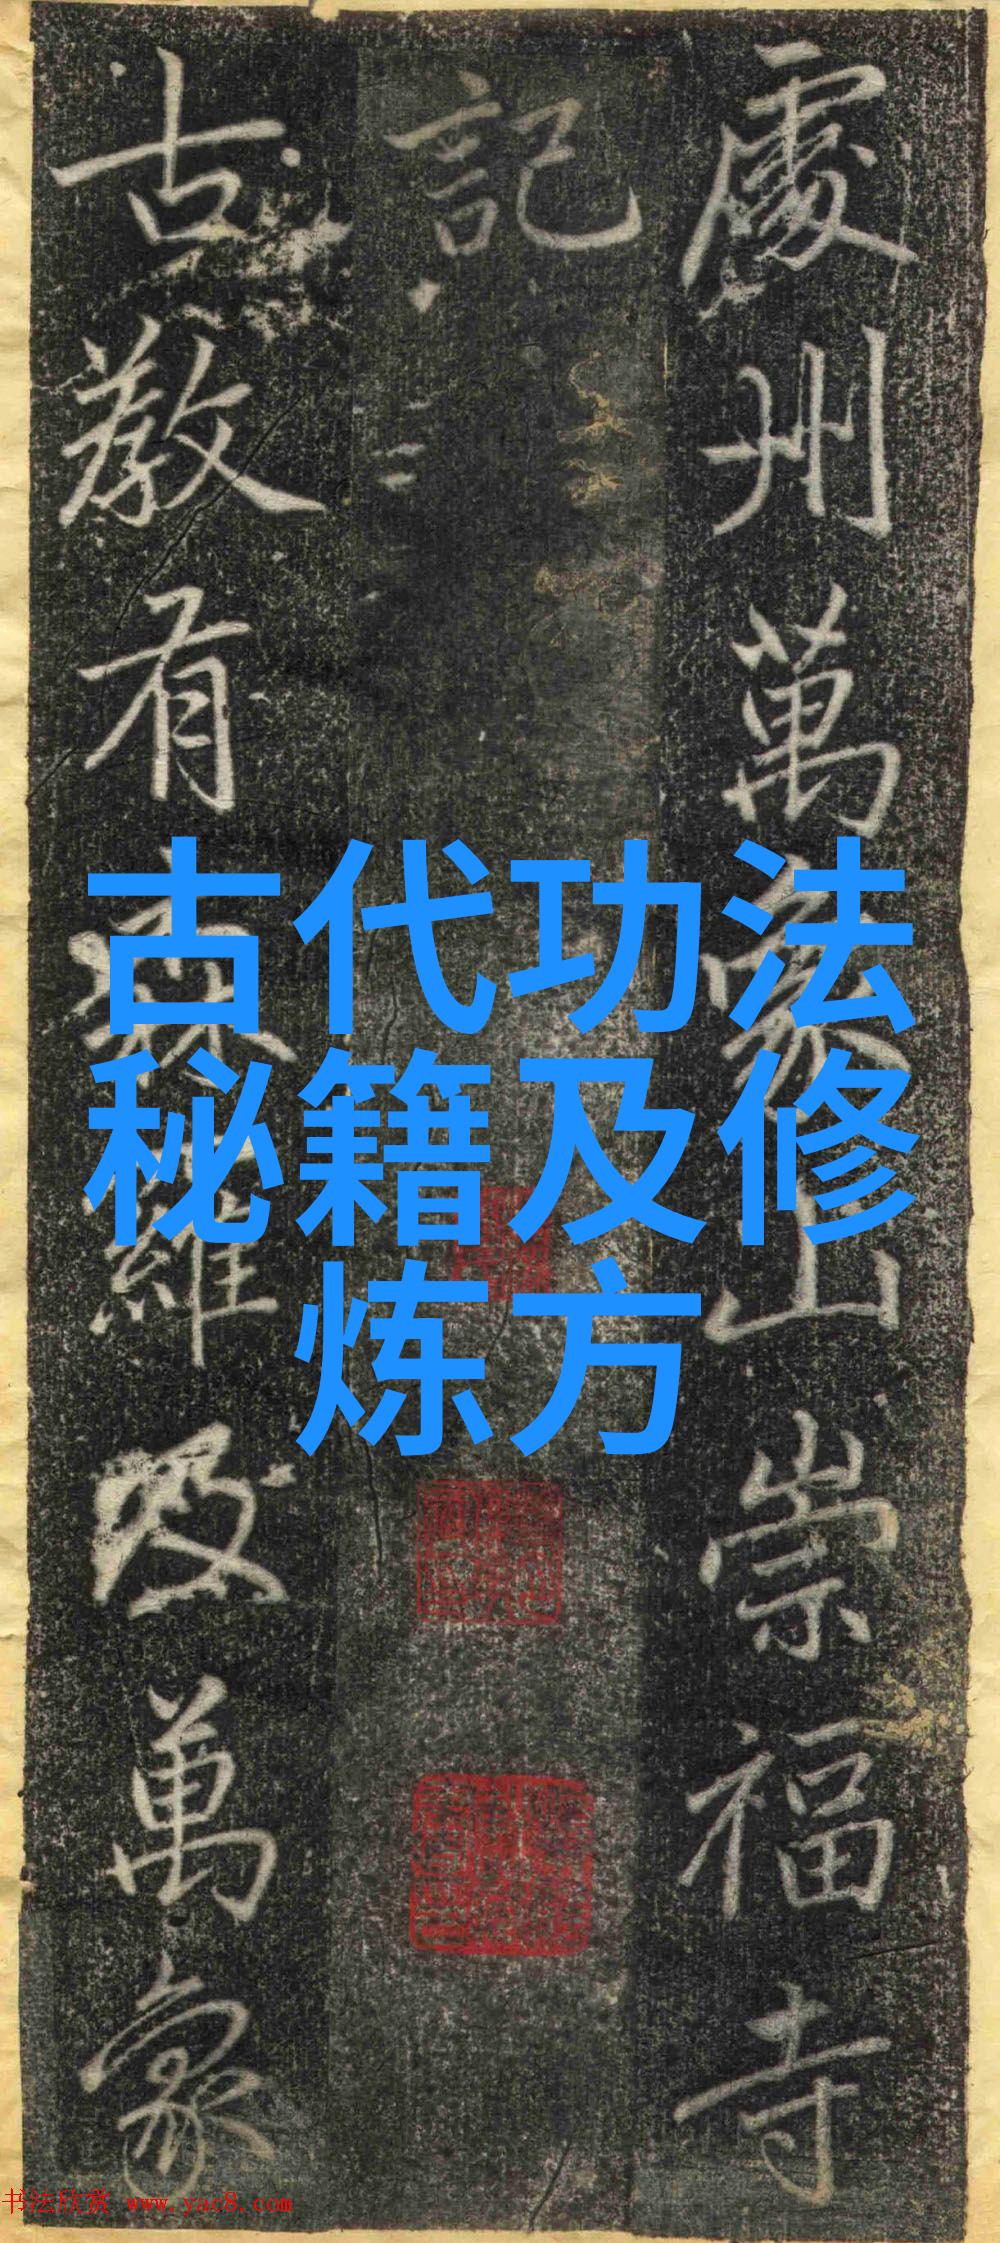 處州萬象山崇福寺
記
古教有森羅及萬象
古代功法
秘籍及修
炼方
书法欣赏 www.yac8.com